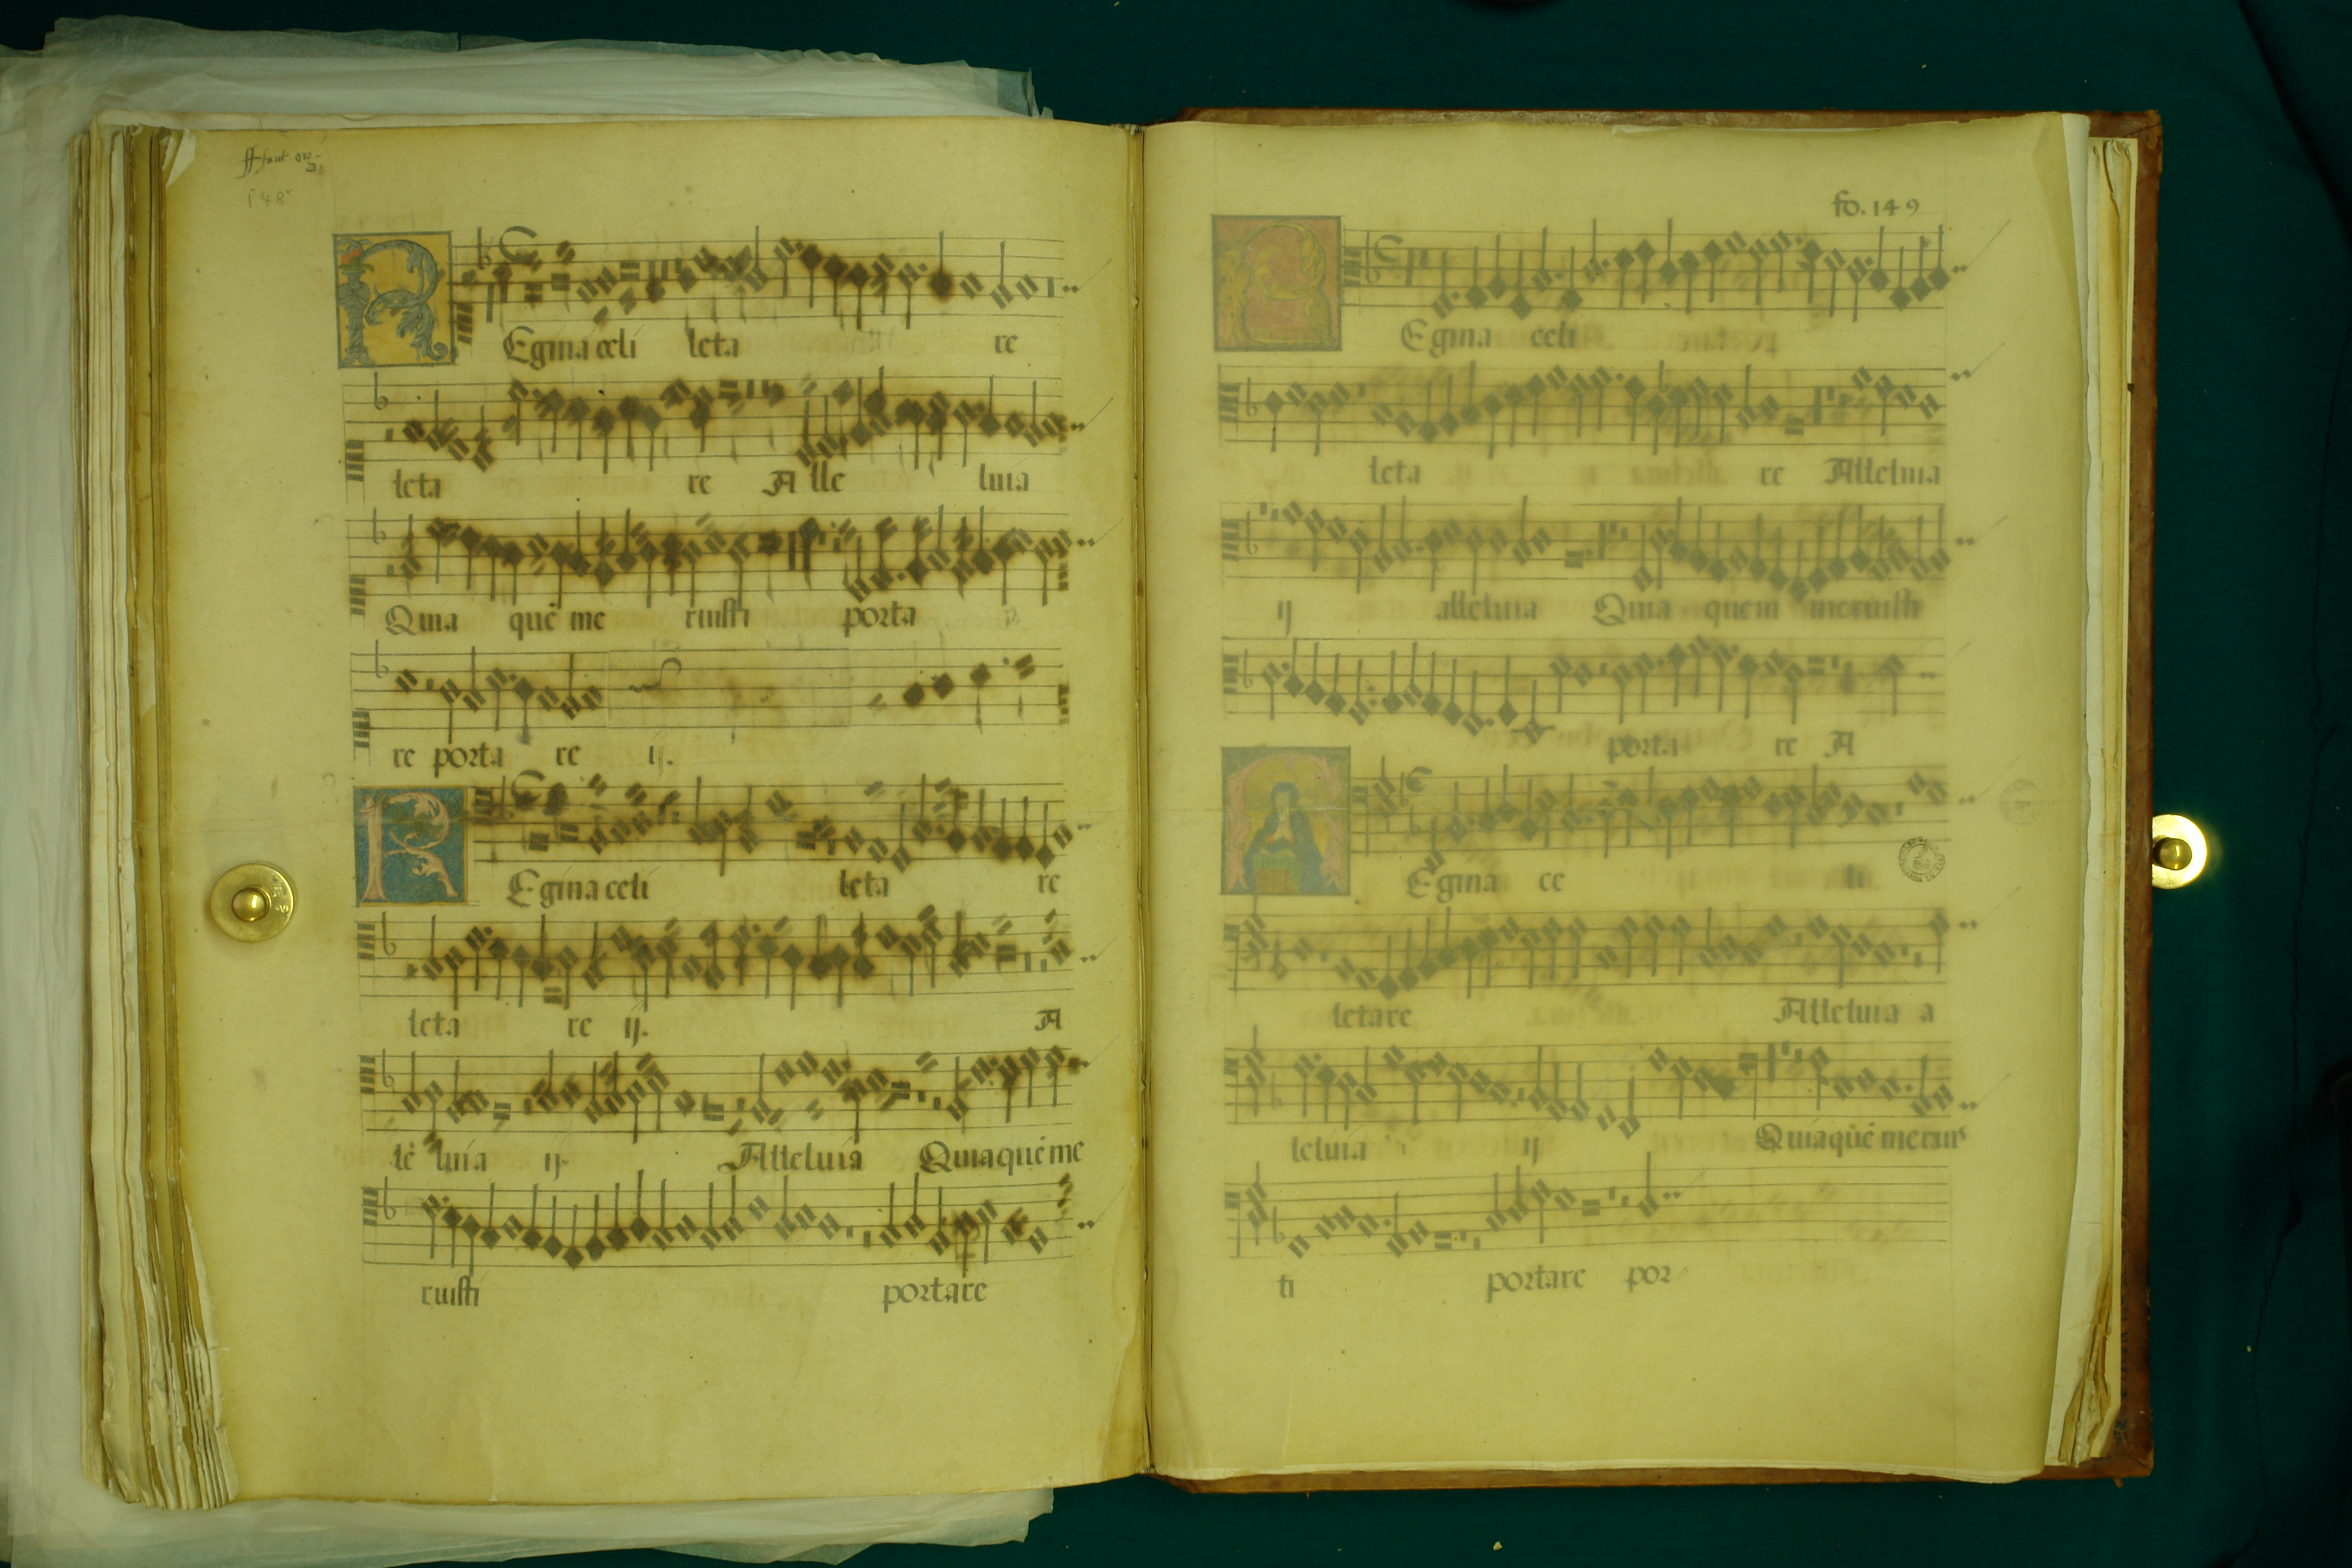 148v
Egina celi leta re
leta re Alle luia
Quia quē me ruisti porta
re porta re ij.
R Egina celi leta re
leta re ij. A
lē luia ij. Alleluia Quia quē me
ruisti portare
fo. 149
R Egina celi
leta re Alleluia
ij alleluia Quia quem meruisti
porta re A
R Egina ce li
letare Alleluia a
leluia ij Quia quē merui
ti portare por